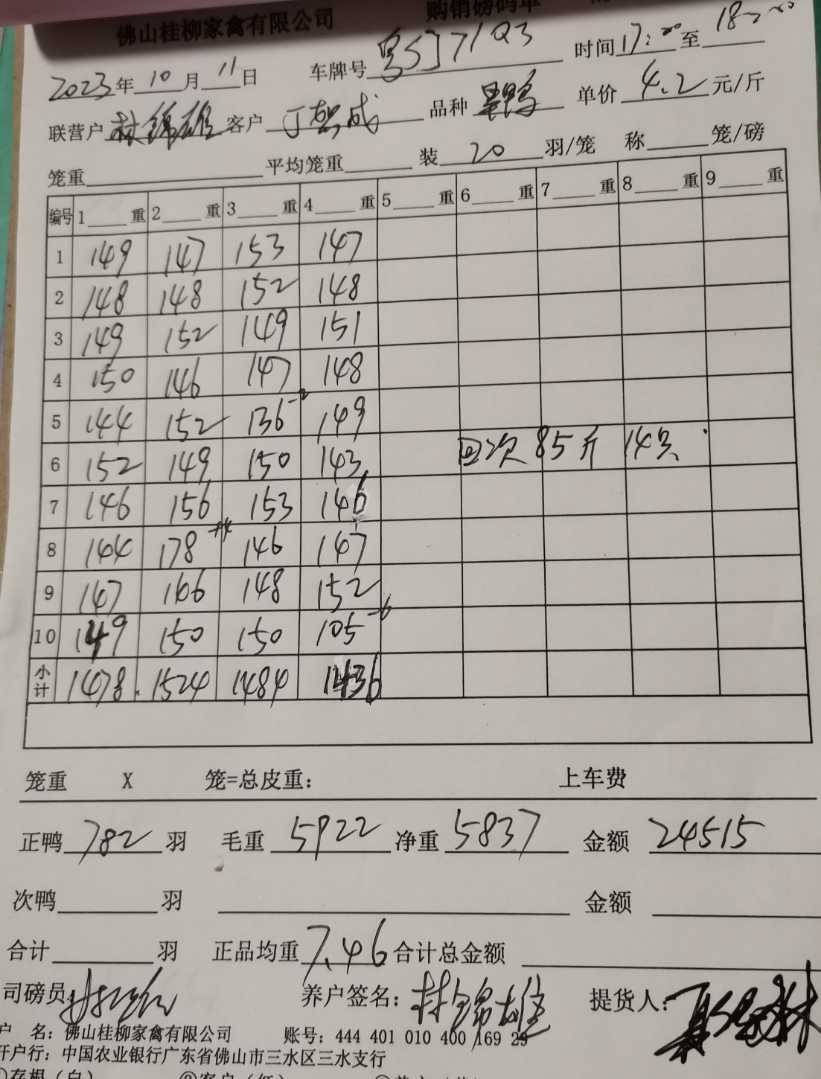 佛山桂柳家禽有限公司 购销磅码单
2023年10月11日 车牌号 时间17:00至18:00
联营户林锦雄 客户 品种 单价4.2元/斤
笼重 平均笼重 装20羽/笼 称 笼/磅
编号 1 重 2 重 3 重 4 重 5 重 6 重 7 重 8 重 9 重
1 149 147 153 147
2 148 148 152 148
3 149 152 149 151
4 150 146 147 148
5 144 152 136-2 149
6 152 149 150 143 回次 85斤 14只
7 146 156 153 146
8 144 178 146 147
9 147 146 148 152
10 149 150 150 105-6
小计 1478 1524 1484 1436
笼重 X 笼=总皮重: 上车费
正鸭782羽 毛重5922 净重5837 金额24515
次鸭 羽 金额
合计 羽 正品均重7.46 合计总金额
司磅员: 养户签名:林锦雄 提货人:
户 名:佛山桂柳家禽有限公司 账号:444 401 010 400 169 29
开户行:中国农业银行广东省佛山市三水区三水支行